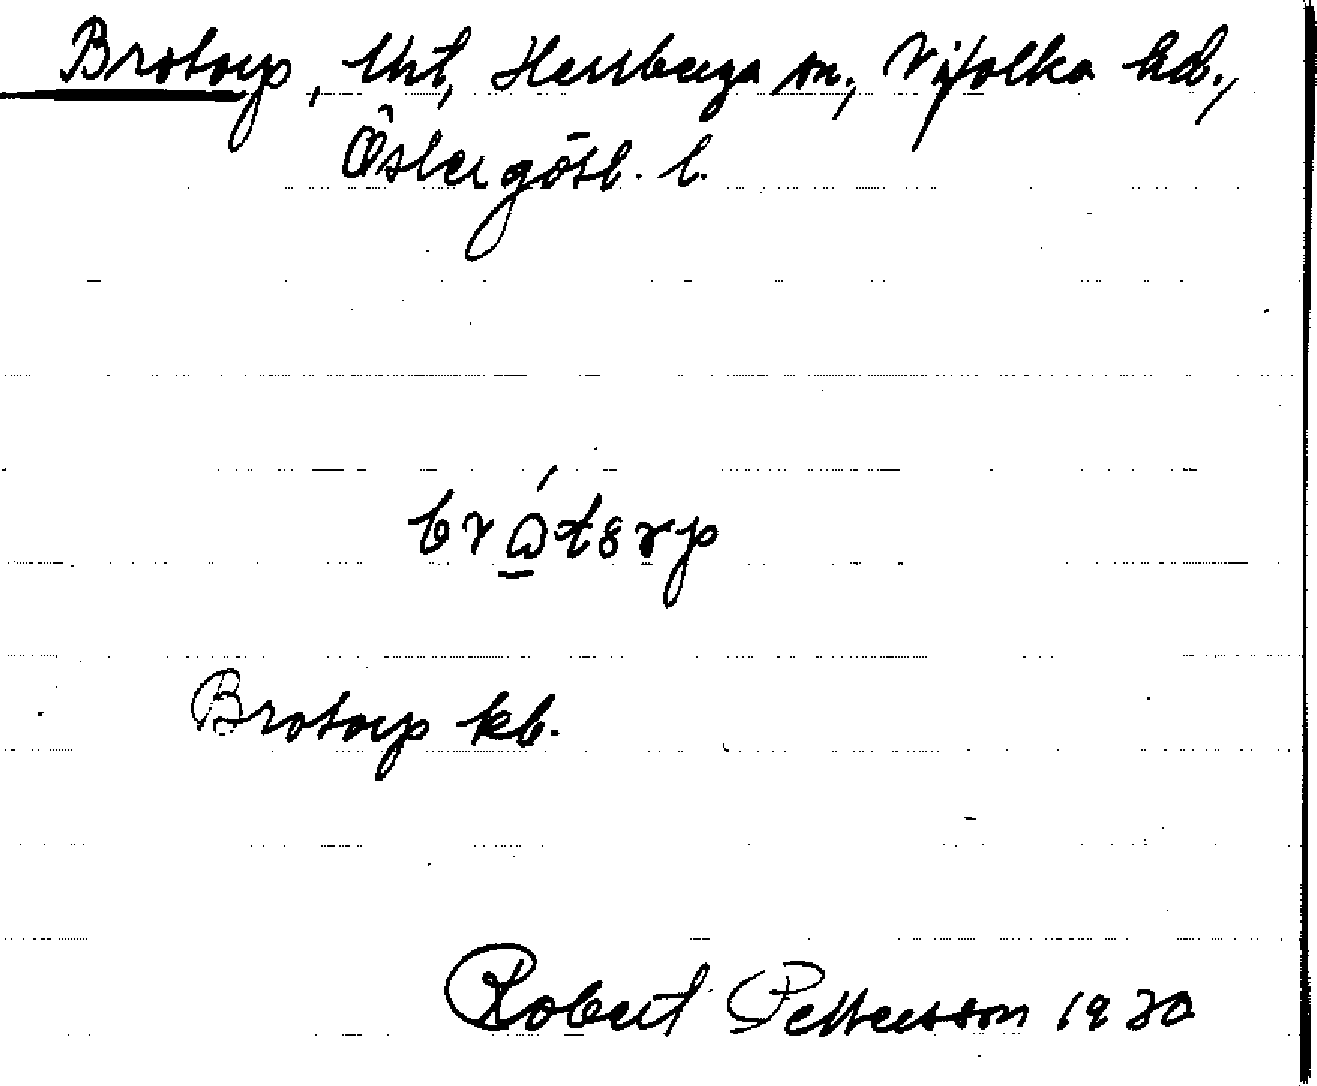 Brotorp, Utÿ, Herrberga sn., Vifolka hd.,
Östergötl. l.
Brotorp kb.
Robert Pettersson 1930